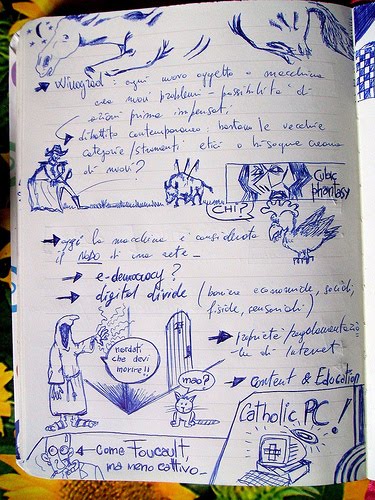 → Winograd: ogni nuovo oggetto o macchina
crea nuovi problemi - possibilità di
azioni prima impensate.
→ dibattito contemporaneo: bastano le vecchie
categorie/strumenti etici o bisogna crearne
di nuovi?
Cubic
phantasy
CHI?
→ oggi la macchina è considerata
il NODO di una rete_
→ e-democracy?
→ digital divide (barriere economiche, sociali,
fisiche, sensoriali)
→ proprietà/regolamentazio-
ne di Internet
ricordati
che devi
morire!!
mao?
→ content & Education
Catholic PC!
← come Foucault,
ma meno cattivo_